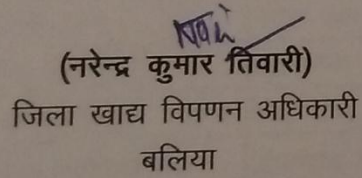 (नरेन्द्र कुमार तिवारी)
जिला खाद्य विपणन अधिकारी
बलिया